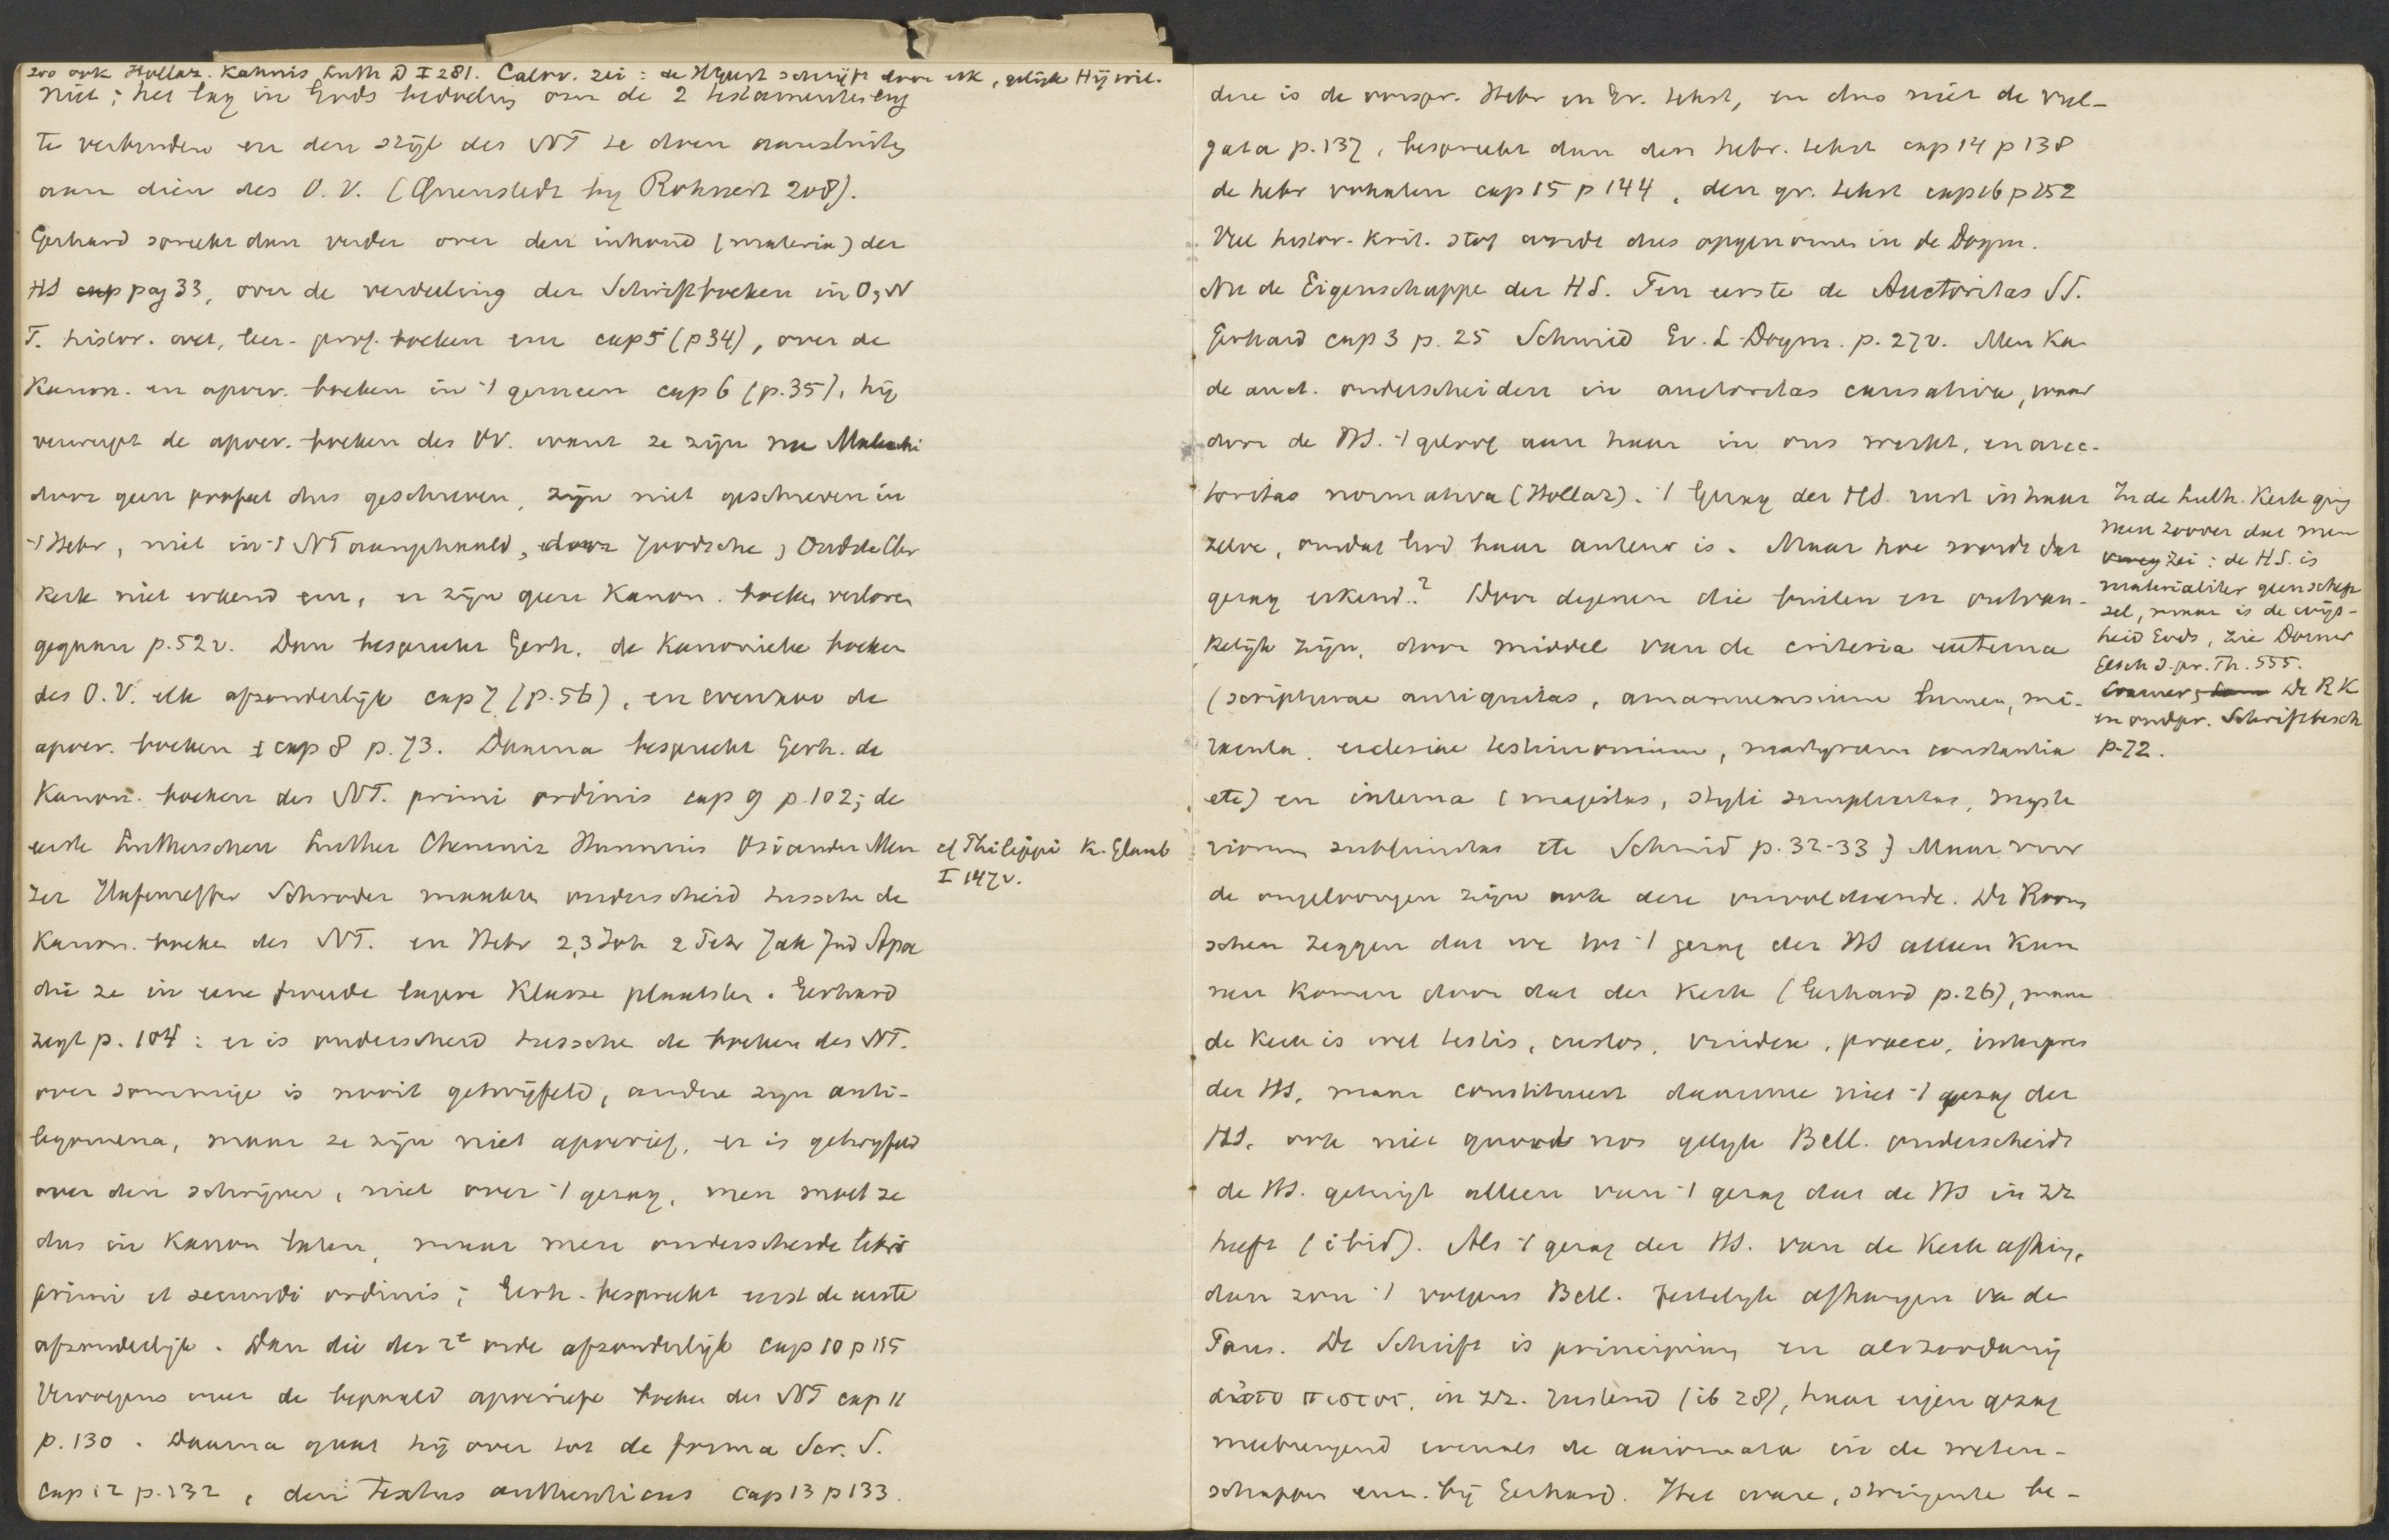 zoo ook Hollaz. Kahnis Luth D I 281. Calov. zei: de HGeest schrijft door elk, gelijk Hij wil.
niet; het lag in Gods bedoeling om de 2 testamenten eng
te verbinden en den stijl des NT te doen aansluiten
aan dien des O.V. (Quenstedt bij Rohnert 208).
Gerhard spreekt dan verder over den inhoud (materia) der
HS cap pag 33, over de verdeeling der Schriftboeken in O, N
T. histor. avet, leer- prof. boeken enz cap 5 (p 34), over de
Kanon. en apocr. boeken in 't gemeen cap 6 (p. 35), hij
verwerpt de apocr. boeken des OV. want ze zijn na Maleachi
door geen profeet dus geschreven, zijn niet geschreven in
't Hebr, niet in 't NT aangehaald, door Joodsche, Oudste Chr
Kerk niet erkend enz, er zijn geen Kanon. boeken verloren
gegaan p. 52 v. Dan bespreekt Gerh. de Kanonieke boeken
des O.V. elk afzonderlijk cap 7 (p. 56), en evenzoo de
apocr. boeken cap 8 p. 73. Daarna bespreekt Gerh. de
Kanon. boeken des NT. primi ordinis cap 9 p. 102; de
eerste Lutherschen Luther Chemniz Hunnius Osiander Men
zer Hafenreffer Schroder maakten onderscheid tusschen de
Kanon. boeken des NT. en Hebr 2,3 Joh 2 Petr Jak Jud Apoc
die ze in eene tweede lagere Klasse plaatsten. Gerhard
zegt p. 104: er is onderscheid tusschen de boeken des NT.
over sommige is nooit getwijfeld, andere zijn anti-
legomena, maar ze zijn niet apocrief, er is getwijfeld
over den schrijver, niet over 't gezag, men moet ze
dus in Kanon laten, maar men onderscheide libri
primi et secundi ordinis; Gerh. bespreekt eerst de eerste
afzonderlijk. Dan die der 2e orde afzonderlijk cap 10 p 115
Vervolgens over de bepaald apocriefe boeken des NT cap 11
p. 130. Daarna gaat hij over tot de forma Scr. S.
cap 12 p. 132, den Textus authenticus cap 13 p 133.
cf Philippi K. Glaub
I 147 v.
deze is de oorspr. Hebr en Gr. tekst, en dus niet de vul-
gata p. 137, bespreekt dan den hebr. tekst cap 14 p 138
de hebr vokalen cap 15 p 144, den gr. tekst cap 16 p 152
Veel histor. krit. stof werd dus opgenomen in de Dogm.
Nu de Eigenschappen der HS. Ten eerste de Auctoritas SS.
Gerhard cap 3 p. 25 Schmid Ev. L. Dogm. p. 27 v. Men kan
de auct. onderscheiden in auctoritas causativa, waar
door de HS. 't geloof aan haar in ons werkt, en auc-
toritas normativa (Hollaz). 't Gezag der HS. rust in haar
zelve, omdat God haar auteur is. Maar hoe wordt dat
gezag erkend? Door degenen die buiten en onkan-
kelijk zijn, door middel van de criteria externa
(scripturae antiquitas, amanuensium lumen, mi-
racula, ecclesiae testimonium, martyrum constantia
etc) en interna (majestas, styli simplicitas, myste
riorum sublimitas etc Schmid p. 32-33) Maar voor
de ongeloovigen zijn ook deze onvoldoende. De Room
schen zeggen dat we tot 't gezag der HS alleen kun
nen komen door dat der Kerk (Gerhard p. 26), maar
de Kerk is wel testis, custos, vindex, praeco, interpres
der HS, maar constitueert daarmee niet 't gezag der
HS, ook niet quoad nos gelijk Bell. onderscheidt
de HS. getuigt alleen van 't gezag dat de HS in zz
heeft (ibid). Als 't gezag der HS. van de Kerk afhing,
dan zou 't volgens Bell. feitelijk afhangen va de
Paus. De Schrift is principium en als zoodanig
αὐτοπιστος, in zz. rustend (ib 28), haar eigen gezag
meebrengend evenals de axiomata in de weten-
schappen enz. bij Gerhard. Het ware, dringendste be-
In de Luth. Kerk ging
men zoover dat men
zei: de HS. is
materialiter geen schep
sel, maar is de wijs-
heid Gods, zie Dorner
Gesch d. pr. Th. 555.
Cramer, De R K
en oudpr. Schriftbesch
p. 72.